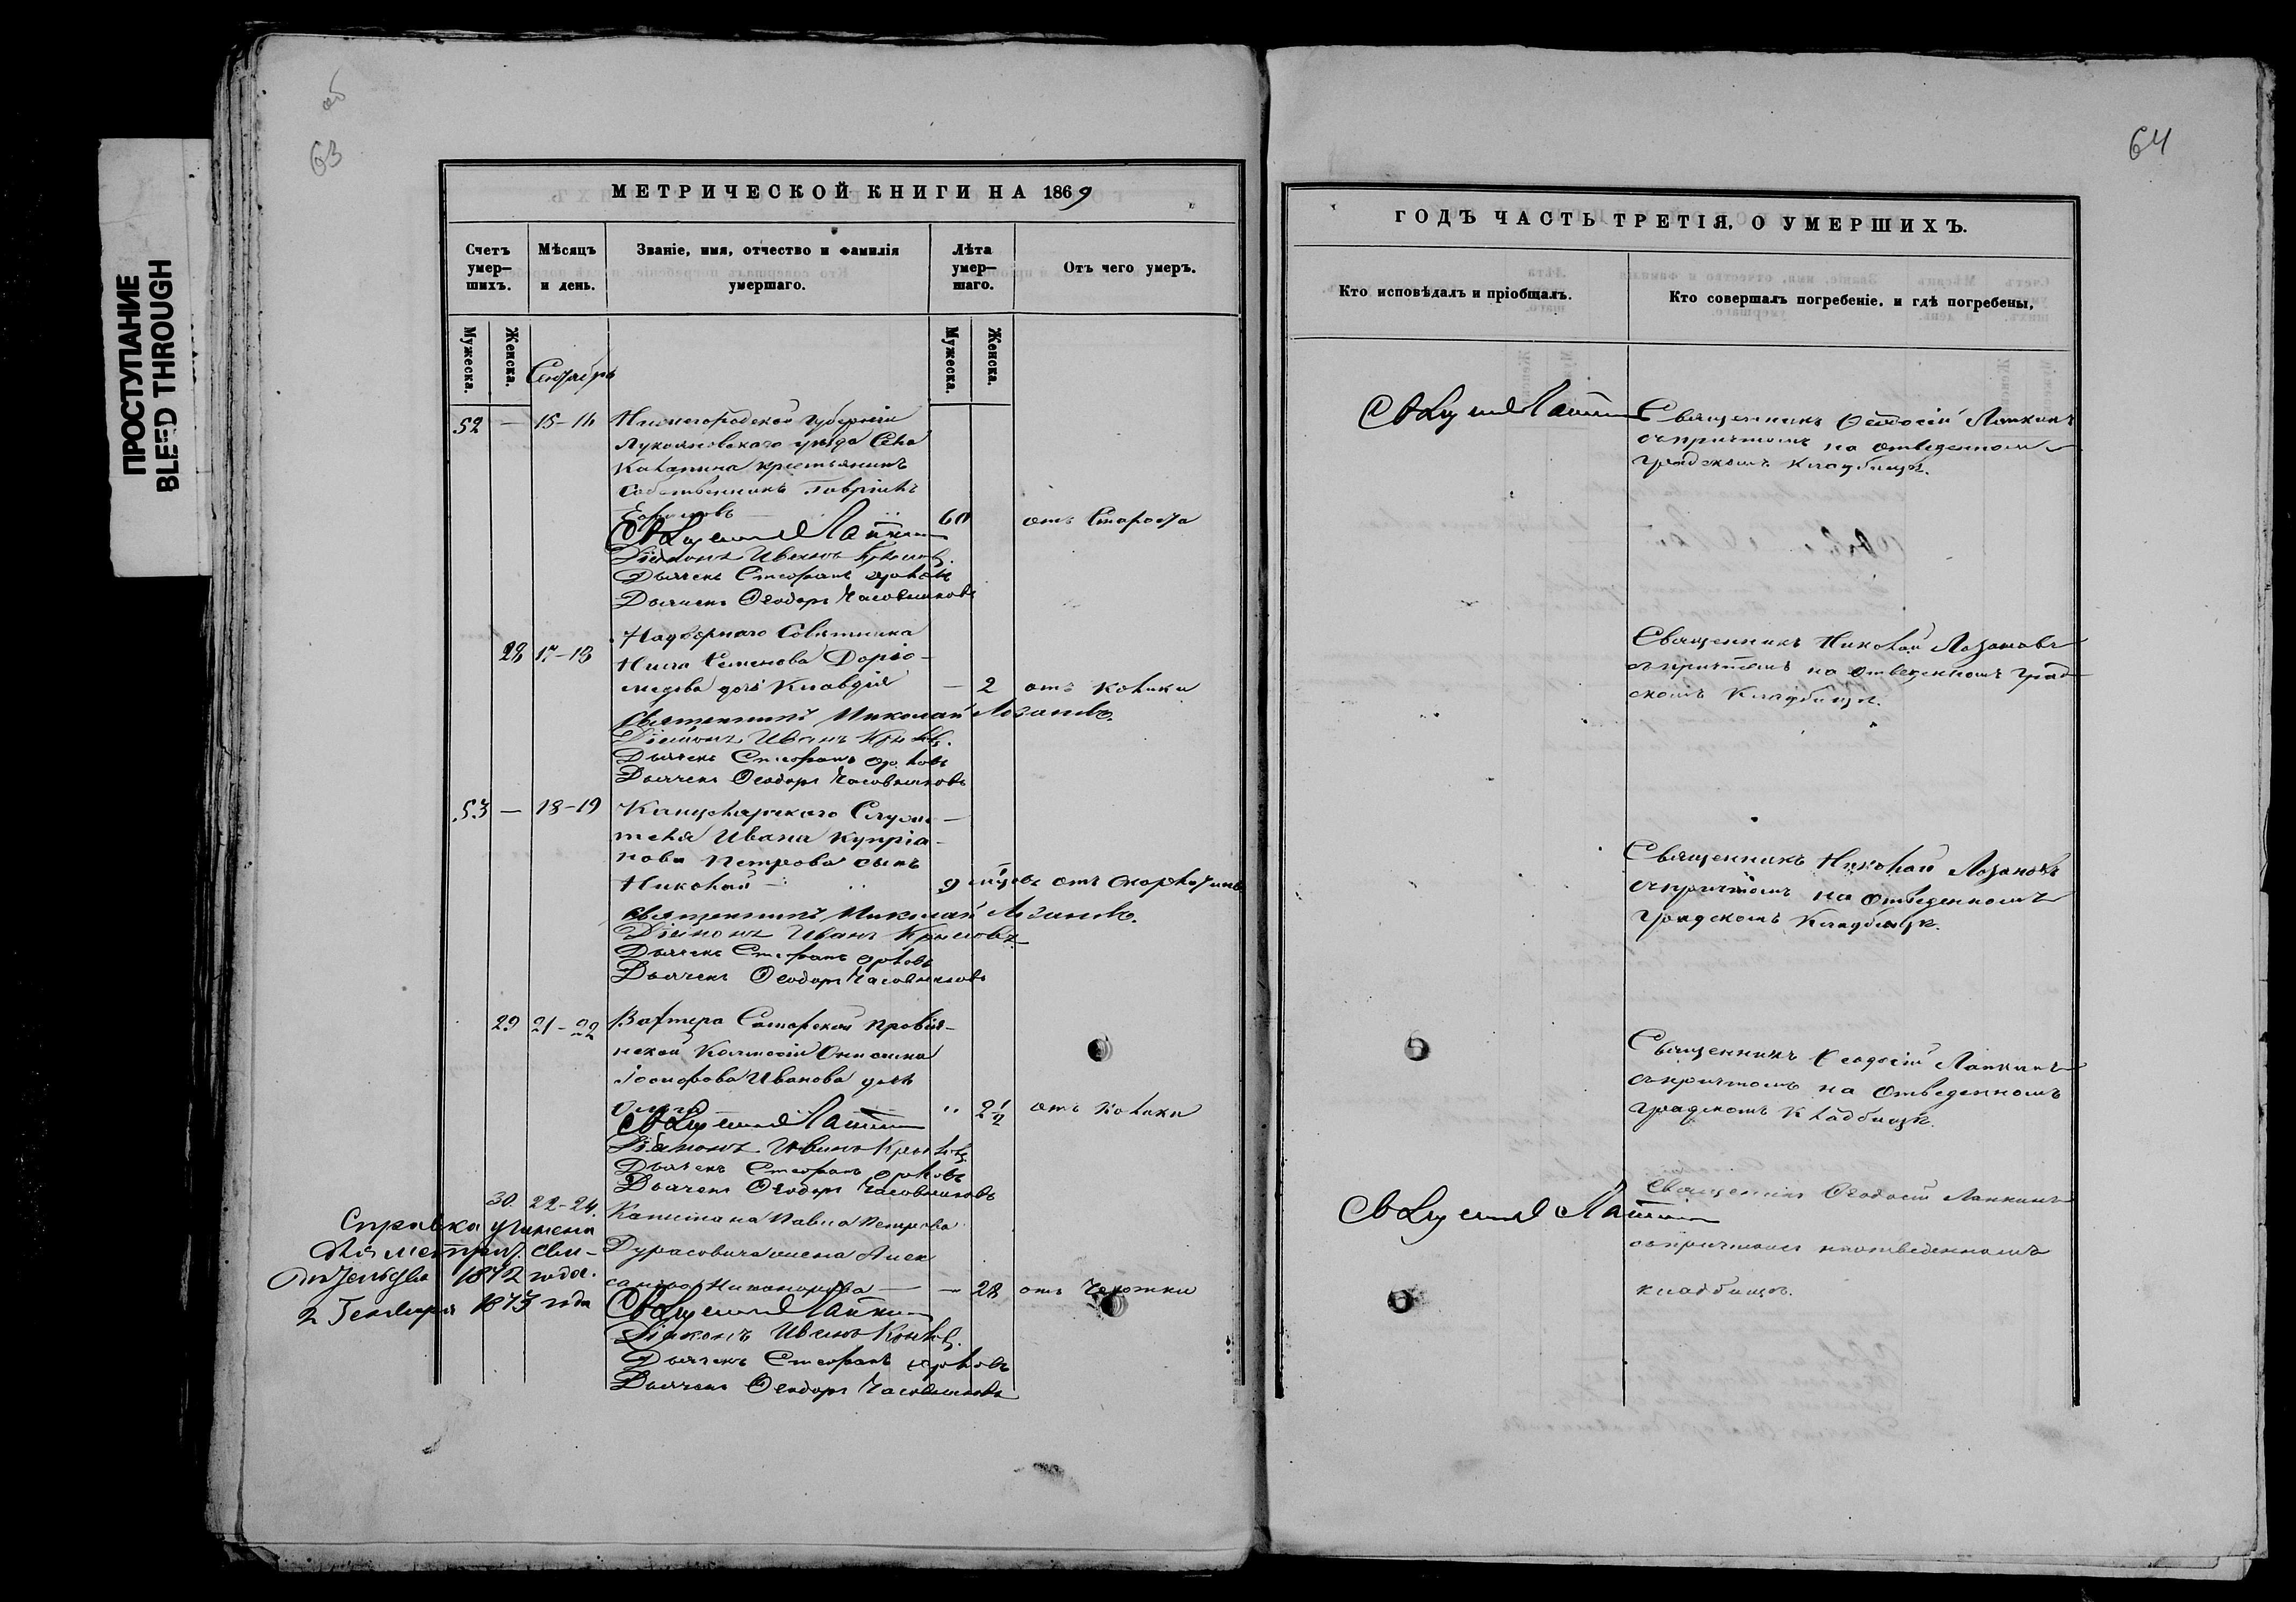 об
63
64
ПРОСТУПАНИЕ
BLEED THROUGH
МЕТРИЧЕСКОЙ КНИГИ НА 1869
Счетъ умер-шихъ.
Мѣсяцъ и день.
Званіе, имя, отчество и фамилія умершаго.
Лѣта умер-шаго.
Отъ чего умеръ.
Мужеска.
Женска.
Сентябрь
Мужеска.
Женска.
52 — 15-16 Нижегородской губерніи
Лукояновскаго уѣзда Села
крестьянинъ
собственникъ Гавріилъ
60 отъ Старости
Лапкинъ
Діаконъ Иванъ Крыловъ.
Дьячекъ Стефанъ Орловъ
Дьячекъ Ѳеодоръ Часовниковъ
28 17-18 Надворнаго Совѣтника
Семенова
дочь Клавдія — 2 отъ колики
Священникъ Николай Лозановъ.
Діаконъ Иванъ Крыловъ.
Дьячекъ Стефанъ Орловъ
Дьячекъ Ѳеодоръ Часовниковъ
53 — 18-19 Канцелярскаго Служи-
теля Ивана Купріа-
нова Петрова сынъ
Николай 9 мѣсяц. отъ
Священникъ Николай Лозановъ.
Діаконъ Иванъ Крыловъ.
Дьячекъ Стефанъ Орловъ
Дьячекъ Ѳеодоръ Часовниковъ
29 21-22 Вахтера Самарской провіа-
нской Коммисіи
Иванова дочь
Ольга 2½ отъ колики
Лапкинъ
Діаконъ Иванъ Крыловъ
Дьячекъ Стефанъ Орловъ
Дьячекъ Ѳеодоръ Часовниковъ
30 22-24. Капитана Павла Петрова
Дурасовича жена Алек
сандра — 28 отъ Чахотки
Лапкинъ
Діаконъ Иванъ Крыловъ.
Дьячекъ Стефанъ Орловъ
Дьячекъ Ѳеодоръ Часовниковъ
Справка учинена
для метрич. сви-
дѣтельства 1872 года.
2 Генваря 1873 года
ГОДЪ ЧАСТЬ ТРЕТІЯ, О УМЕРШИХЪ.
Кто исповѣдалъ и пріобщалъ.
Кто совершалъ погребеніе, и гдѣ погребены.
Лапкинъ
Священникъ Ѳеодосій Лапкинъ
съ причтомъ на отведенномъ
градскомъ кладбищѣ.
Священникъ Николай Лозановъ
съ причтомъ на отведенномъ град
скомъ Кладбищѣ.
Священникъ Николай Лозановъ
съ причтомъ на отведенномъ
градскомъ Кладбищѣ.
Священникъ Ѳеодосій Лапкинъ
съ причтомъ на отведенномъ
градскомъ Кладбищѣ.
Лапкинъ
Священникъ Ѳеодосій Лапкинъ
съ причтомъ на отведенномъ
кладбищѣ.